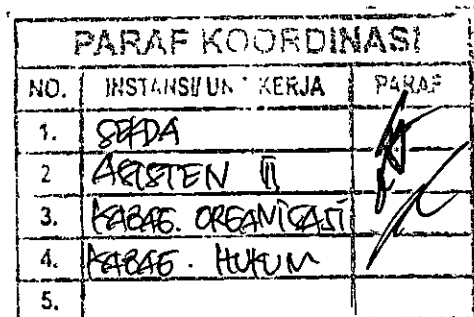 PARAF KOORDINASI
NO. INSTANSI/UNIT KERJA PARAF
1. SEKDA
2 ASISTEN III
3. KABAG. ORGANISASI
4. KABAG. HUKUM
5.